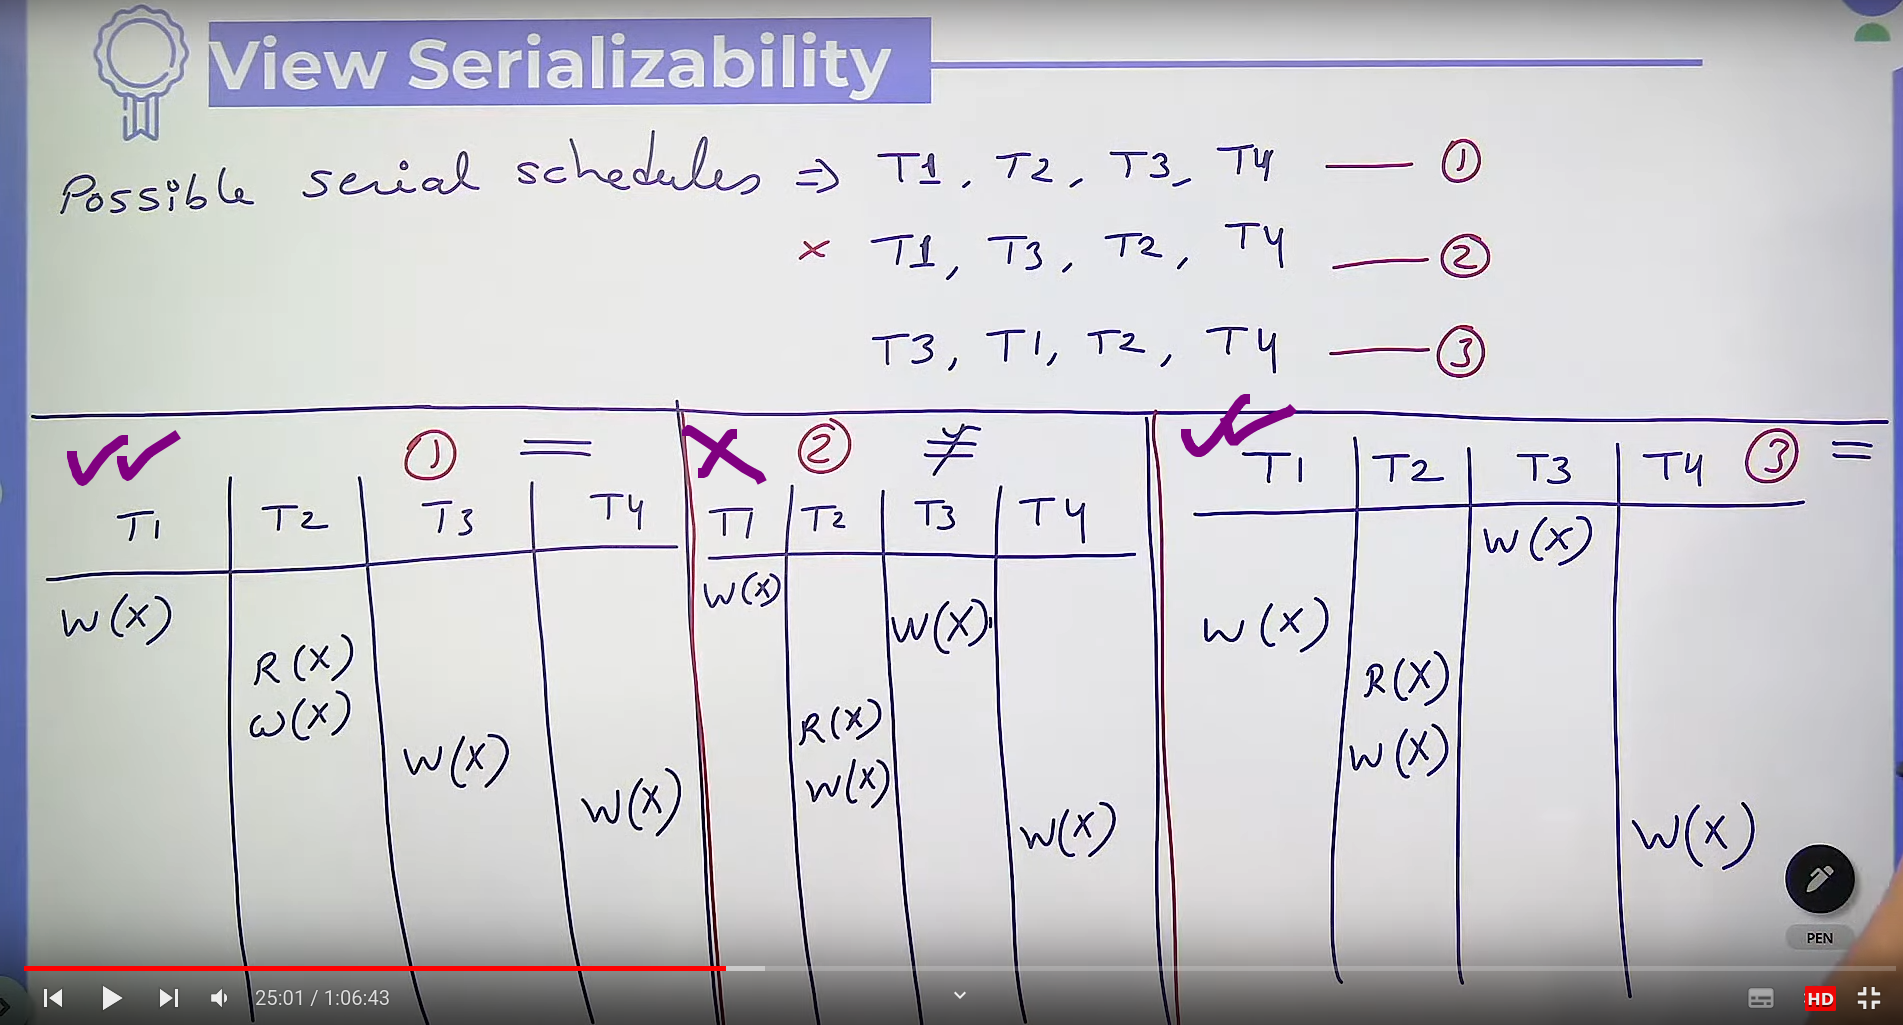 View Serializability
Possible serial schedules ⇒ T1, T2, T3, T4 — ①
× T1, T3, T2, T4 — ②
T3, T1, T2, T4 — ③
① =
T1 T2 T3 T4
W(X)
R(X)
W(X)
W(X)
W(X)
② ≠
T1 T2 T3 T4
W(X)
W(X)
R(X)
W(X)
W(X)
T1 T2 T3 T4 ③ =
W(X)
W(X)
R(X)
W(X)
W(X)
PEN
25:01 / 1:06:43
HD